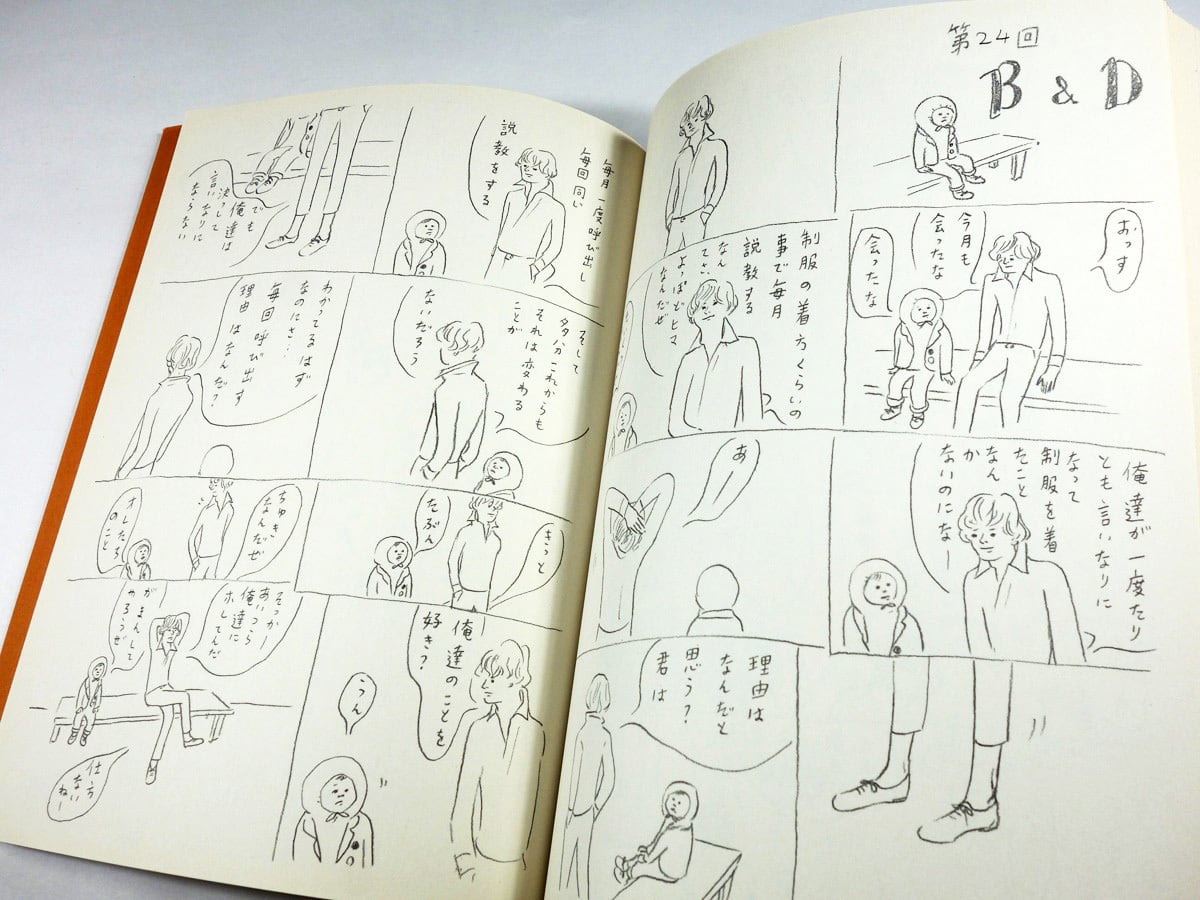 第24回
B & D
おっす
今月も
会ったな
会ったな
制服の着方くらいの
事で毎月
説教する
なん
てさ、
よっぽどヒマ
なんだぜ
俺達が一度たり
とも言いなりに
なって
制服を着
たこと
なん
か
ないのになー
あ
理由は
なんだと
思う?
君は
毎月一度呼び出し
毎回同い
説教をする
でも
俺達は
決して
言いなりに
ならない
そして
多分これからも
それは変わる
ことが
ないだろう
わかってるはず
なのにさ…
毎回呼び出す
理由はなんだ?
きっと
たぶん
ちゅき
なんだぜ
オレたち
のこと
俺達のことを
好き?
うん
そっかー
あいつら
俺達に
ホレてんだ
がまんして
やろうぜ
仕方
ない
ねー